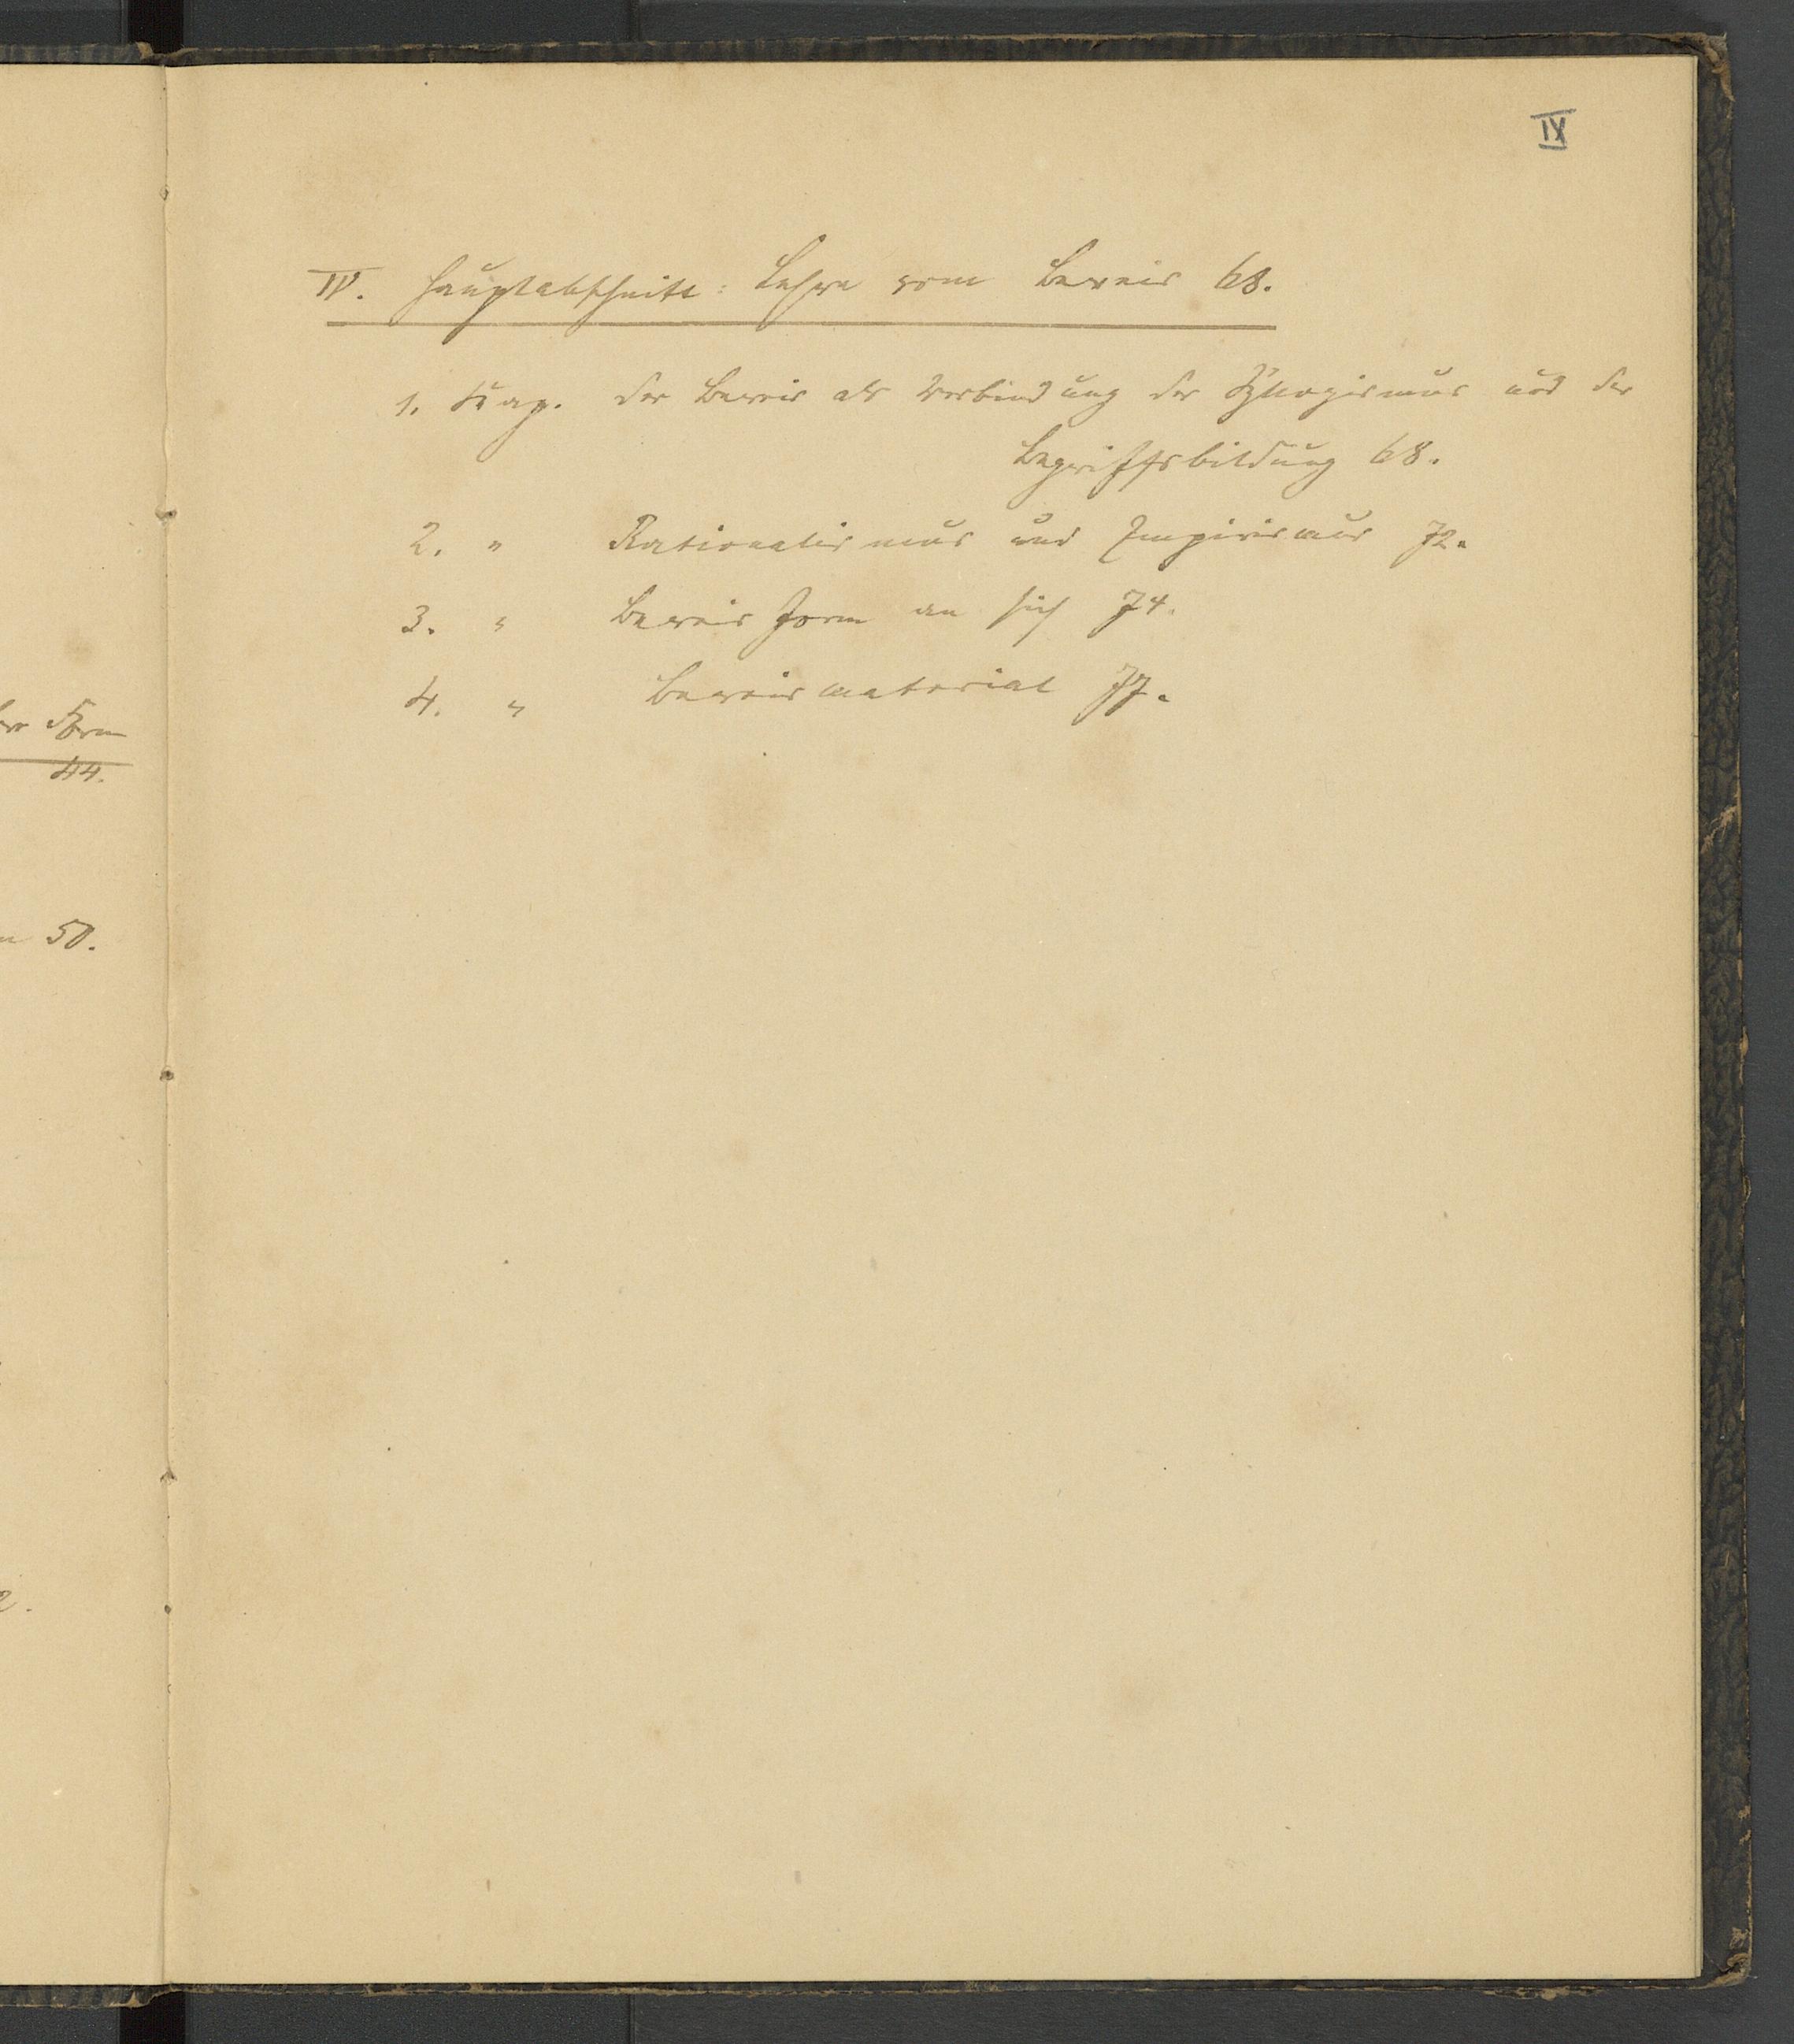 IX
IV. Hauptabschnitt: Lehre vom Beweis 68.
1. Kap. Der Beweis als Verbindung der Syllogismus und der
Begriffsbildung 68.
2. " Rationalismus und Empirismus 72.
3. " Beweisform an sich 74.
4. " Beweismaterial 77.
Form
44.
50.